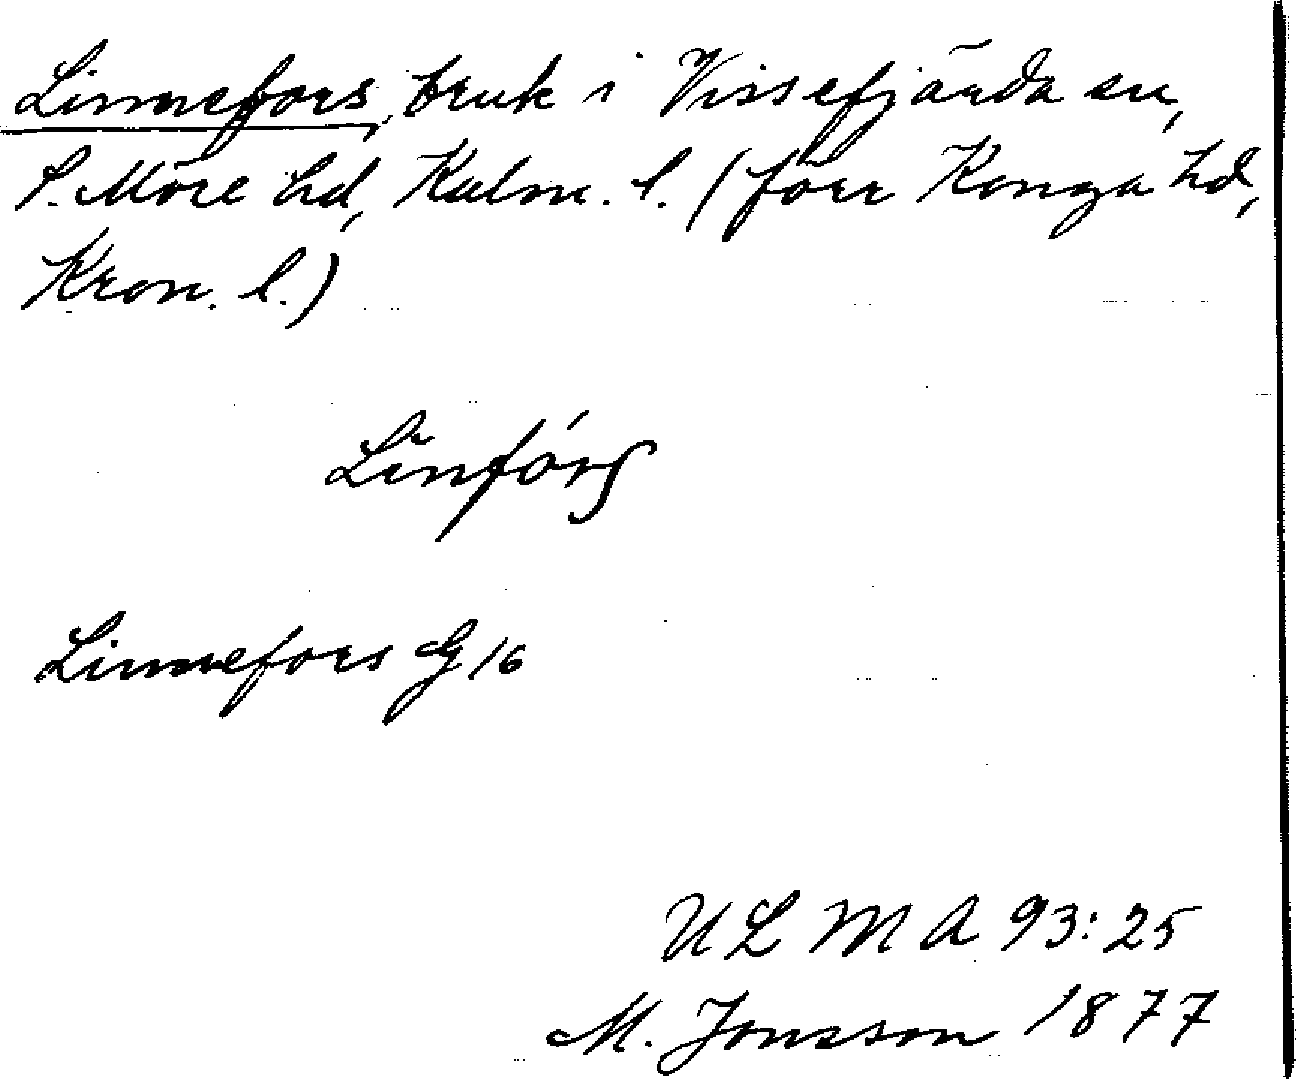 Linnefors, bruk i Vissefjärda sn,
S. Möre hd, Kalm. l. (förr Konga hd,
Kron. l.)
Linfórs
Linnefors G 16
ULMA 93:25
M. Jonsson 1877